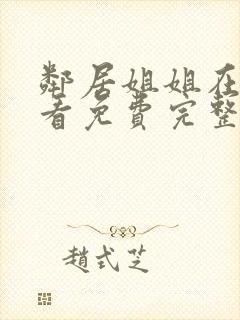 鄰居姐姐在
看免費完整
趙式芝